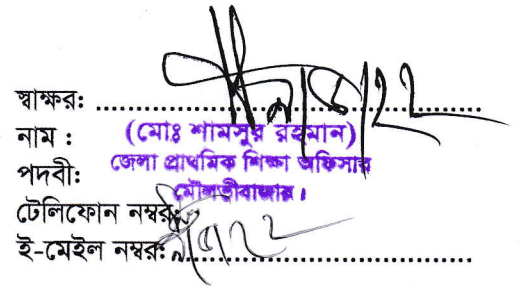 স্বাক্ষর: ......................................................
নাম : (মোঃ শামসুর রহমান)
পদবী: জেলা প্রাথমিক শিক্ষা অফিসার
মৌলভীবাজার।
টেলিফোন নম্বর:
ই-মেইল নম্বর: ......................................................